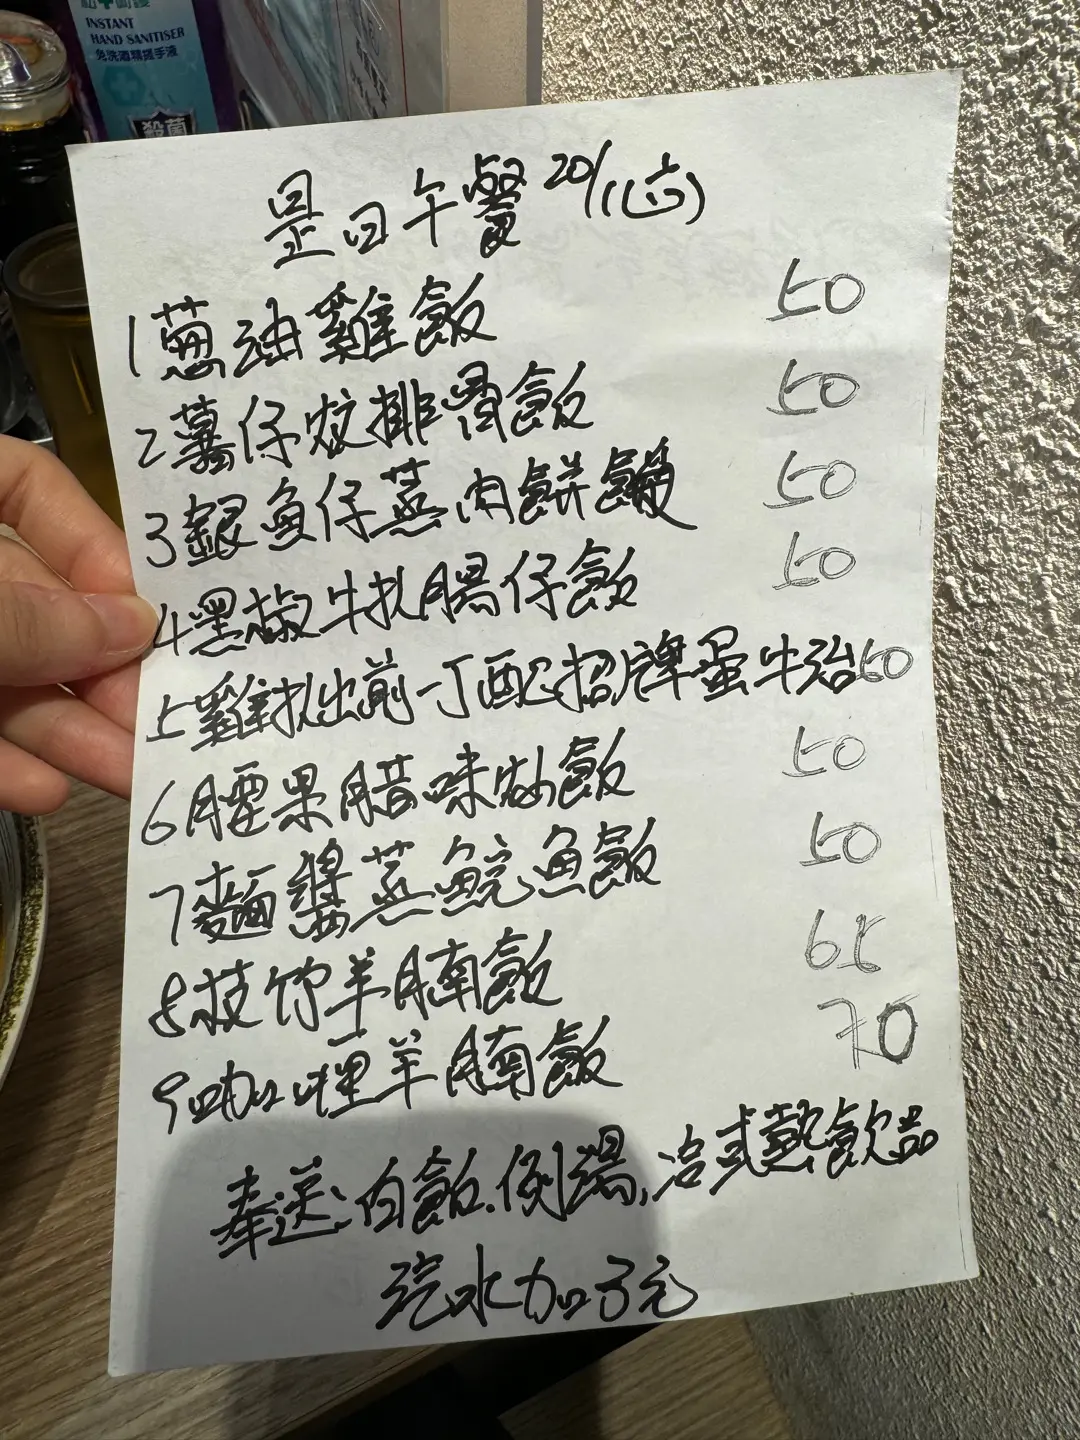 INSTANT
HAND SANITISER
免洗酒精搓手液
殺菌
是日午餐 20/1(六)
1 蔥油雞飯 50
2 薯仔炆排骨飯 50
3 銀魚仔蒸肉餅飯 50
4 黑椒牛扒腸仔飯 50
5 雞扒出前一丁配招牌蛋牛治 50
6 腰果腊味炒飯 50
7 麵醬蒸鯇魚飯 50
8 枝竹羊腩飯 65
9 咖哩羊腩飯 70
奉送:白飯.例湯,冷或熱飲品
汽水加3元